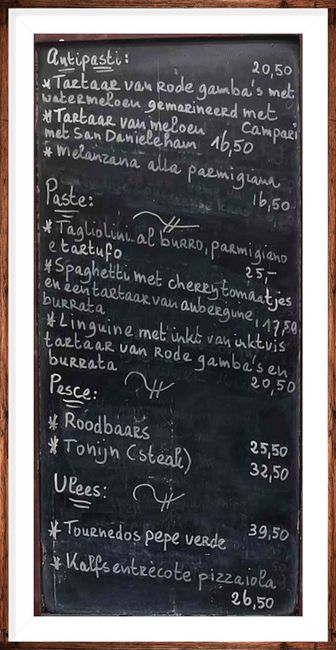 Antipasti:
20,50
* Tartaar van rode gamba's met
watermeloen gemarineerd met
Campari
* Tartaar van meloen
met San Danieleham 16,50
* Melanzana alla parmigiana
16,50
Paste:
* Tagliolini al burro, parmigiano
e tartufo
25,-
* Spaghetti met cherrytomaatjes
en een tartaar van aubergine,
burrata 17,50
* Linguine met inkt van inktvis
tartaar van rode gamba's en
burrata
20,50
Pesce:
* Roodbaars
25,50
* Tonijn (steak)
32,50
Vlees:
39,50
* Tournedos pepe verde
* Kalfsentrecote pizzaiola
26,50